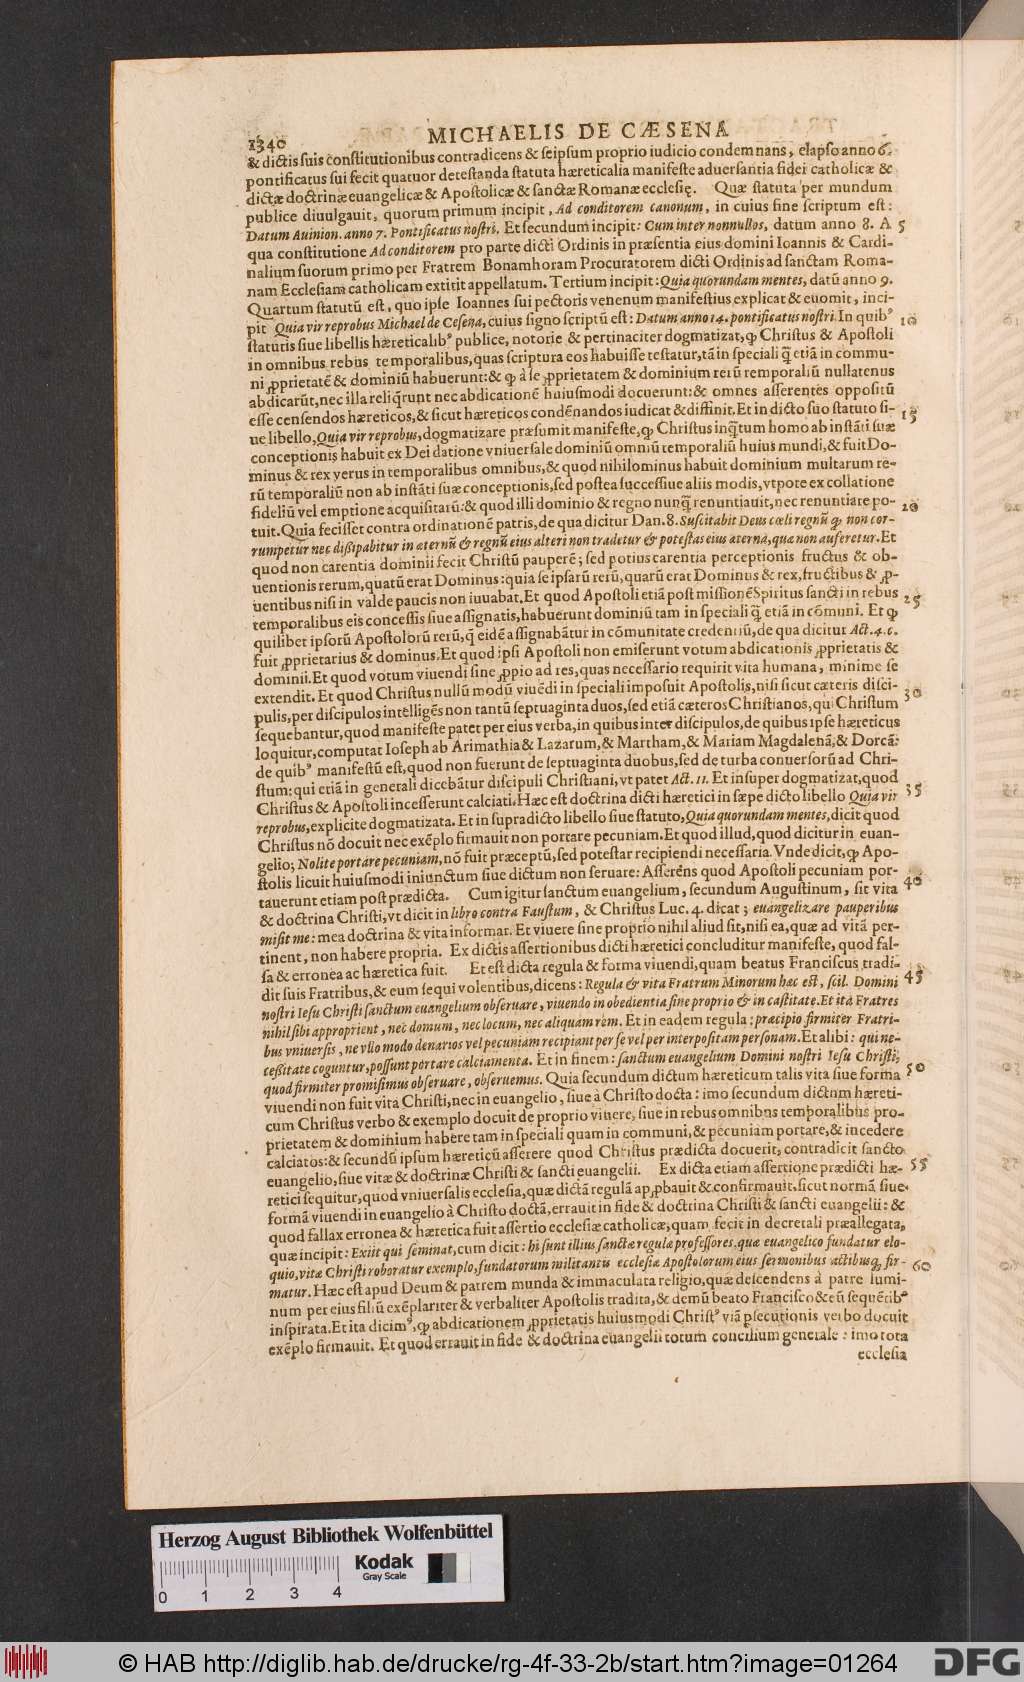 1340 MICHAELIS DE CÆSENA
& dictis suis constitutionibus contradicens & seipsum proprio iudicio condemnans, elapso anno 6.
pontificatus sui fecit quatuor detestanda statuta hæreticalia manifeste aduersantia fidei catholicæ &
dictæ doctrinæ euangelicæ & Apostolicæ & sanctæ Romanæ ecclesię. Quæ statuta per mundum
publice diuulgauit, quorum primum incipit, Ad conditorem canonum, in cuius fine scriptum est:
Datum Auinion. anno 7. Pontificatus nostri. Et secundum incipit: Cum inter nonnullos, datum anno 8. A 5
qua constitutione Ad conditorem pro parte dicti Ordinis in præsentia eius domini Ioannis & Cardi-
nalium suorum primo per Fratrem Bonamhoram Procuratorem dicti Ordinis ad sanctam Roma-
nam Ecclesiam catholicam extitit appellatum. Tertium incipit: Quia quorundam mentes, datū anno 9.
Quartum statutū est, quo ipse Ioannes sui pectoris venenum manifestius explicat & euomit, inci-
pit Quia vir reprobus Michael de Cesena, cuius signo scriptū est: Datum anno 14. pontificatus nostri. In quibꝰ 10
statutis siue libellis hæreticalibꝰ publice, notorie & pertinaciter dogmatizat, ꝙ Christus & Apostoli
in omnibus rebus temporalibus, quas scriptura eos habuisse testatur, tā in speciali q̄ etiā in commu-
ni ꝓprietatē & dominiū habuerunt: & ꝙ à se ꝓprietatem & dominium rerū temporaliū nullatenus
abdicarūt, nec illa reliq̄runt nec abdicationē huiusmodi docuerunt: & omnes asserentes oppositū
esse censendos hæreticos, & sicut hæreticos condēnandos iudicat & diffinit. Et in dicto suo statuto si-
ue libello, Quia vir reprobus, dogmatizare præsumit manifeste, ꝙ Christus inq̄tum homo ab instāti suæ 15
conceptionis habuit ex Dei datione vniuersale dominiū omniū temporaliū huius mundi, & fuit Do-
minus & rex verus in temporalibus omnibus, & quod nihilominus habuit dominium multarum re-
rū temporaliū non ab instāti suæ conceptionis, sed postea successiue aliis modis, vtpote ex collatione
fideliū vel emptione acquisitarū: & quod illi dominio & regno nunq̄ renuntiauit, nec renuntiare po-
tuit. Quia fecisset contra ordinationē patris, de qua dicitur Dan. 8. Suscitabit Deus cœli regnū ꝙ non cor- 20
rumpetur nec dissipabitur in æternū & regnū eius alteri non tradetur & potestas eius æterna, qua non auferetur. Et
quod non carentia dominii fecit Christū pauperē; sed potius carentia perceptionis fructus & ob-
uentionis rerum, quatū erat Dominus: quia se ipsarū rerū, quarū erat Dominus & rex, fructibus & ꝓ-
uentibus nisi in valde paucis non iuuabat. Et quod Apostoli etiā post missionē Spiritus sancti in rebus
temporalibus eis concessis siue assignatis, habuerunt dominiū tam in speciali q̄ etiā in cōmuni. Et ꝙ 25
quilibet ipsorū Apostolorū rerū, q̄ eidē assignabātur in cōmunitate credentiū, de qua dicitur Act. 4. c.
fuit ꝓprietarius & dominus. Et quod ipsi Apostoli non emiserunt votum abdicationis ꝓprietatis &
dominii. Et quod votum viuendi sine ꝓpio ad res, quas necessario requirit vita humana, minime se
extendit. Et quod Christus nullū modū viuēdi in speciali imposuit Apostolis, nisi sicut cæteris disci-
pulis, per discipulos intelligēs non tantū septuaginta duos, sed etiā cæteros Christianos, qui Christum 30
sequebantur, quod manifeste patet per eius verba, in quibus inter discipulos, de quibus ipse hæreticus
loquitur, computat Ioseph ab Arimathia & Lazarum, & Martham, & Mariam Magdalenā, & Dorcā:
de quibꝰ manifestū est, quod non fuerunt de septuaginta duobus, sed de turba conuersorū ad Chri-
stum: qui etiā in generali dicebātur discipuli Christiani, vt patet Act. 11. Et insuper dogmatizat, quod
Christus & Apostoli incesserunt calciati. Hæc est doctrina dicti hæretici in sæpe dicto libello Quia vir 35
reprobus, explicite dogmatizata. Et in supradicto libello siue statuto, Quia quorundam mentes, dicit quod
Christus nō docuit nec exēplo firmauit non portare pecuniam. Et quod illud, quod dicitur in euan-
gelio; Nolite portare pecuniam, nō fuit præceptū, sed potestar recipiendi necessaria. Vnde dicit, ꝙ Apo-
stolis licuit huiusmodi iniunctum siue dictum non seruare: Asserens quod Apostoli pecuniam por-
tauerunt etiam post prædicta. Cum igitur sanctum euangelium, secundum Augustinum, sit vita 40
& doctrina Christi, vt dicit in libro contra Faustum, & Christus Luc. 4. dicat; euangelizare pauperibus
misit me: mea doctrina & vita informat. Et viuere sine proprio nihil aliud sit, nisi ea, quæ ad vitā per-
tinent, non habere propria. Ex dictis assertionibus dicti hæretici concluditur manifeste, quod fal-
sa & erronea ac hæretica fuit. Et est dicta regula & forma viuendi, quam beatus Franciscus tradi-
dit suis Fratribus, & eum sequi volentibus, dicens: Regula & vita Fratrum Minorum hac est, scil. Domini 45
nostri Iesu Christi sanctum euangelium obseruare, viuendo in obedientia sine proprio & in castitate. Et ita Fratres
nihil sibi approprient, nec domum, nec locum, nec aliquam rem. Et in eadem regula: præcipio firmiter Fratri-
bus vniuersis, ne vllo modo denarios vel pecuniam recipiant per se vel per interpositam personam. Et alibi: qui ne-
cessitate coguntur, possunt portare calciamenta. Et in finem: sanctum euangelium Domini nostri Iesu Christi,
quod firmiter promisimus obseruare, obseruemus. Quia secundum dictum hæreticum talis vita siue forma 50
viuendi non fuit vita Christi, nec in euangelio, siue à Christo docta: imo secundum dictum hæreti-
cum Christus verbo & exemplo docuit de proprio viuere, siue in rebus omnibus temporalibus pro-
prietatem & dominium habere tam in speciali quam in communi, & pecuniam portare, & incedere
calciatos: & secundū ipsum hæreticū asserere quod Christus prædicta docuerit, contradicit sancto
euangelio, siue vitæ & doctrinæ Christi & sancti euangelii. Ex dicta etiam assertione prædicti hæ- 55
retici sequitur, quod vniuersalis ecclesia, quæ dictā regulā apꝓbauit & confirmauit, sicut normā siue
formā viuendi in euangelio à Christo doctā, errauit in fide & doctrina Christi & sancti euangelii: &
quod fallax erronea & hæretica fuit assertio ecclesiæ catholicæ, quam fecit in decretali præallegata,
quæ incipit: Exiit qui seminat, cum dicit: hi sunt illius sanctæ regulæ professores, quæ euangelico fundatur elo-
quio, vitæ Christi roboratur exemplo, fundatorum militantis ecclesiæ Apostolorum eius sermonibus actibusq, fir- 60
matur. Hæc est apud Deum & patrem munda & immaculata religio, quæ descendens à patre lumi-
num per eius filiū exēplariter & verbaliter Apostolis tradita, & demū beato Francisco & eū sequētibꝰ
inspirata. Et ita dicimꝰ, ꝙ abdicationem ꝓprietatis huiusmodi Christꝰ viā ꝑfecutionis verbo docuit
exēplo firmauit. Et quod errauit in fide & doctrina euangelii totum concilium generale: imo tota
ecclesia
Herzog August Bibliothek Wolfenbüttel
Kodak
Gray Scale
0 1 2 3 4
© HAB http://diglib.hab.de/drucke/rg-4f-33-2b/start.htm?image=01264 DFG